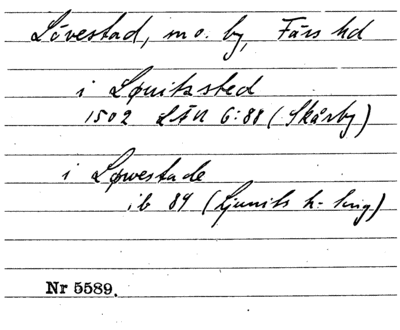 Lövestad, m o. by, Färs hd
i Løuitzsted
1502 LÄU 6:88 (Skårby)
i Løwestade
ib 84 (Ljunits h-ting)
Nr 5589.